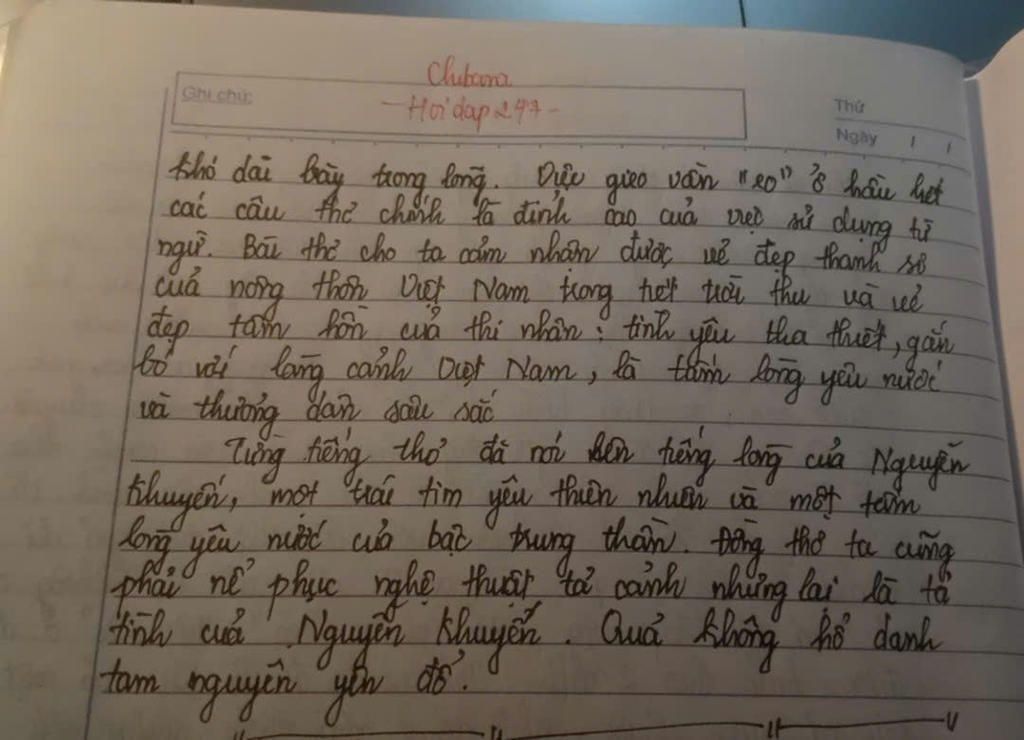 Chibana
Ghi chú:
- Hoidap247 -
Thứ
Ngày / /
khó dãi bày trong lòng. Việc gieo vần "eo" ở hầu hết
các câu thơ chính là đỉnh cao của việc sử dụng từ
ngữ. Bài thơ cho ta cảm nhận được vẻ đẹp thanh sơ
của nông thôn Việt Nam trong tiết trời thu và vẻ
đẹp tâm hồn của thi nhân: tình yêu tha thiết, gắn
bó với làng cảnh Việt Nam, là tấm lòng yêu nước
và thương dân sâu sắc
Từng tiếng thơ đã nói lên tiếng lòng của Nguyễn
Khuyến, một trái tim yêu thiên nhiên và một tấm
lòng yêu nước của bậc trung thần. Đồng thờ ta cũng
phải nể phục nghệ thuật tả cảnh nhưng lại là tả
tình của Nguyễn Khuyến. Quả không hổ danh
tam nguyên yên đổ.